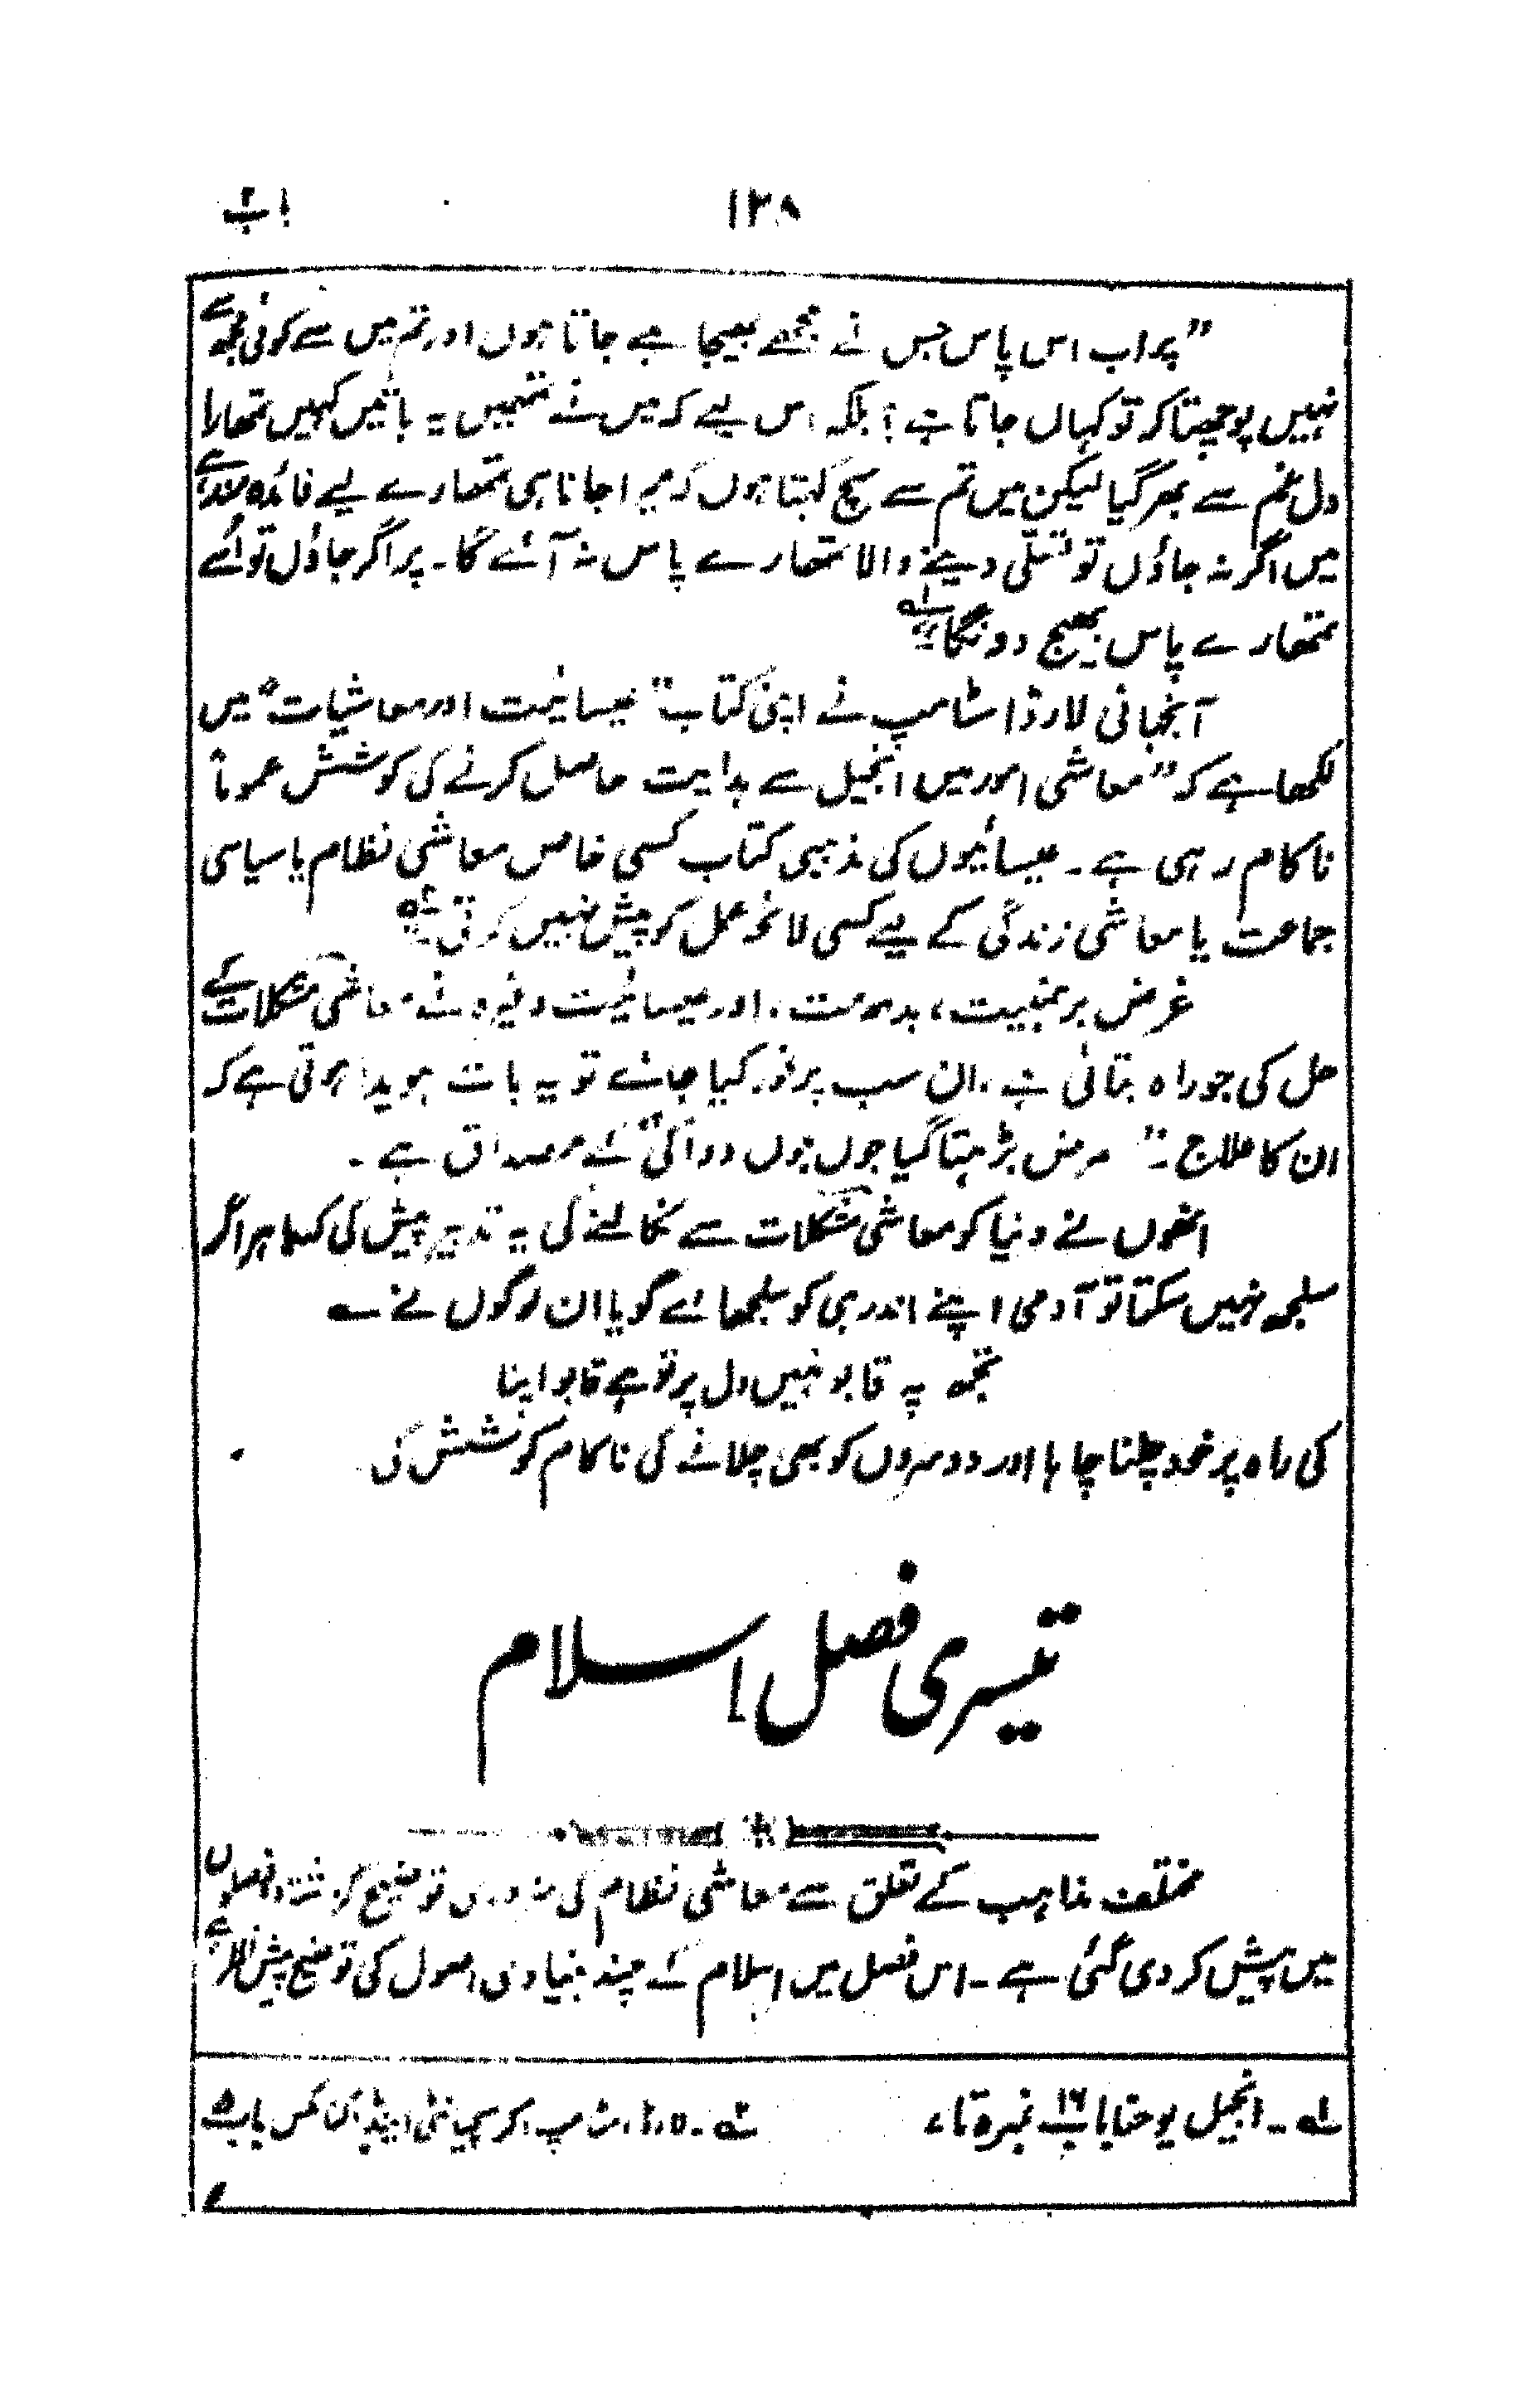 باب ۲ ۱۲۸
”پر اب اس پاس جس نے مجھے بھیجا ہے جاتا ہوں اور تم میں سے کوئی مجھ سے
نہیں پوچھتا کہ تو کہاں جاتا ہے؟ بلکہ اس لیے کہ میں نے تمہیں یہ باتیں کہیں تمھارا
دل غم سے بھر گیا لیکن میں تم سے سچ کہتا ہوں کہ میرا جانا ہی تمھارے لیے فائدہ مند ہے
میں اگر نہ جاؤں تو تسلّی دینے والا تمھارے پاس نہ آئے گا۔ پر اگر جاؤں تو اُسے
تمھارے پاس بھیج دونگا“ ۱؎
آنجہانی لارڈ اسٹامپ نے اپنی کتاب ”عیسائیت اور معاشیات“ میں
لکھا ہے کہ ”معاشی امور میں انجیل سے ہدایت حاصل کرنے کی کوشش عموماً
ناکام رہی ہے۔ عیسائیوں کی مذہبی کتاب کسی خاص معاشی نظام یا سیاسی
جماعت یا معاشی زندگی کے لیے کسی لائحہ عمل کو پیش نہیں کرتی“ ۲؎
غرض برہمنیت، بدھ مت، اور عیسائیت وغیرہ نے معاشی مشکلات کے
حل کی جو راہ بتائی ہے، ان سب پر غور کیا جائے تو یہ بات ہویدا ہوتی ہے کہ
ان کا علاج۔ ”مرض بڑھتا گیا جوں جوں دوا کی“ کے مصداق ہے۔
انھوں نے دنیا کو معاشی مشکلات سے نکالنے کی یہ تدبیر پیش کی کہ باہر اگر
سلجھ نہیں سکتا تو آدمی اپنے اندر ہی کو سلجھائے گویا ان لوگوں نے ؎
تجھ پہ قابو نہیں دل پر تو ہے قابو اپنا
کی راہ پر خود چلنا چاہا اور دوسروں کو بھی چلانے کی ناکام کوشش کی
تیسری فصل اسلام
مختلف مذاہب کے تعلق سے معاشی نظام کی ضروری توضیح گزشتہ دو فصلوں
میں پیش کر دی گئی ہے۔ اس فصل میں اسلام کے چند بنیادی اصول کی توضیح پیش نظر ہے
۱؎۔ انجیل یوحنا باب ۱۶ نمبر ۵ تا ۷ ۲؎۔ کرسچیانٹی اینڈ اکنامکس باب ۵